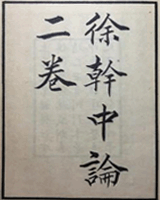 徐幹中論
二卷